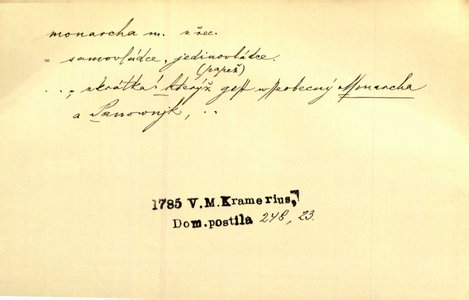 monarcha m. z řec.
= samovládce, jedinovládce.
(papež)
..„ zkrátka kterýž gest wssobecný Monarcha
a Panownjk, ..
1785 V.M.Kramerius,
Dom.postila 248, 23.